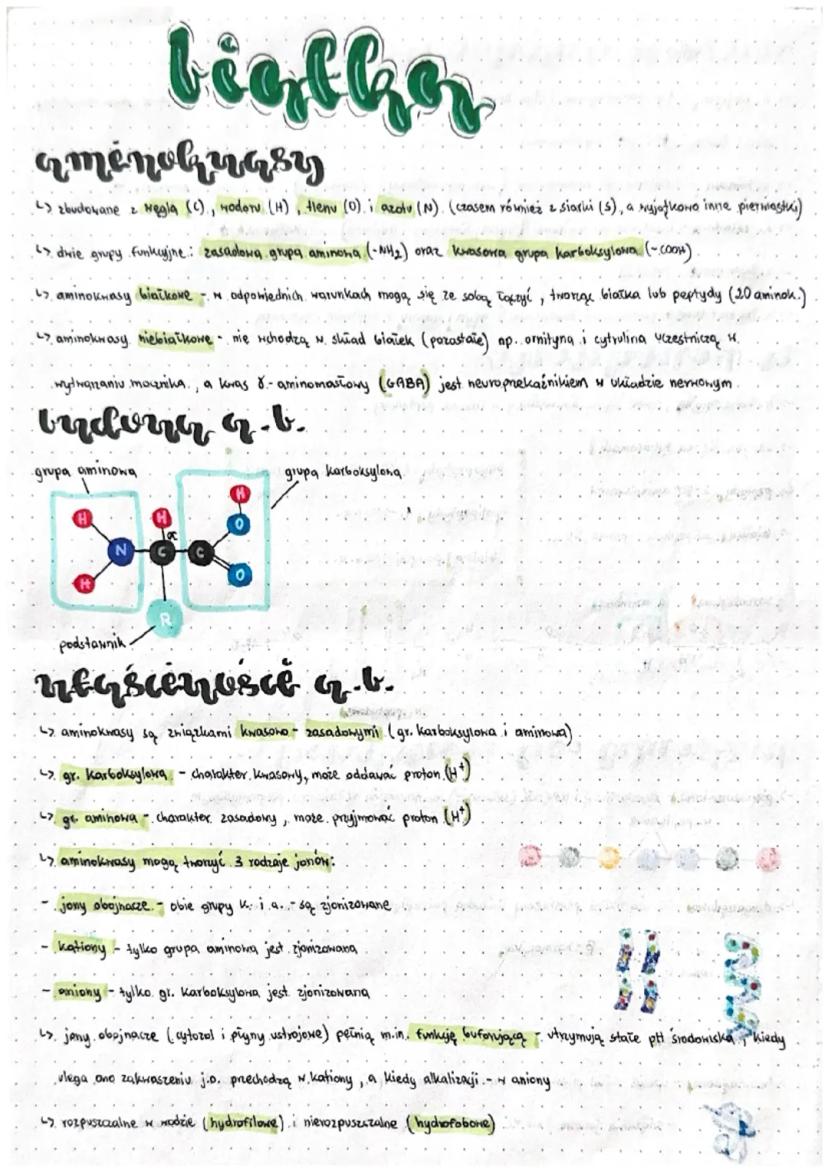 białka
aminokwasy
↳ zbudowane z węgla (C), wodoru (H), tlenu (O) i azotu (N) (czasem również z siarki (S), a wyjątkowo inne pierwiastki)
↳ dwie grupy funkcyjne: zasadowa grupa aminowa (-NH₂) oraz kwasowa grupa karboksylowa (-COOH)
↳ aminokwasy białkowe - w odpowiednich warunkach mogą się ze sobą łączyć, tworząc białka lub peptydy (20 aminok.)
↳ aminokwasy niebiałkowe - nie wchodzą w skład białek (pozostałe) np. ornityna i cytrulina uczestniczą w
wytwarzaniu mocznika, a kwas γ-aminomasłowy (GABA) jest neuroprzekaźnikiem w układzie nerwowym
budowa a.b.
grupa aminowa
grupa karboksylowa
H H H
α
N C C O O
H
R
podstawnik
właściwości a.b.
↳ aminokwasy są związkami kwasowo-zasadowymi (gr. karboksylowa i aminowa)
↳ gr. karboksylowa - charakter kwasowy, może oddawać proton (H⁺)
↳ gr. aminowa - charakter zasadowy, może przyjmować proton (H⁺)
↳ aminokwasy mogą tworzyć 3 rodzaje jonów:
- jony obojnacze - obie grupy k. i a. - są zjonizowane
- kationy - tylko grupa aminowa jest zjonizowana
- aniony - tylko gr. karboksylowa jest zjonizowana
↳ jony obojnacze (cytozol i płyny ustrojowe) pełnią m.in. funkcję buforującą - utrzymują stałe pH środowiska, kiedy
ulega ono zakwaszeniu j.o. przechodzą w kationy, a kiedy alkalizacji - w aniony
↳ rozpuszczalne w wodzie (hydrofilowe) i nierozpuszczalne (hydrofobowe)